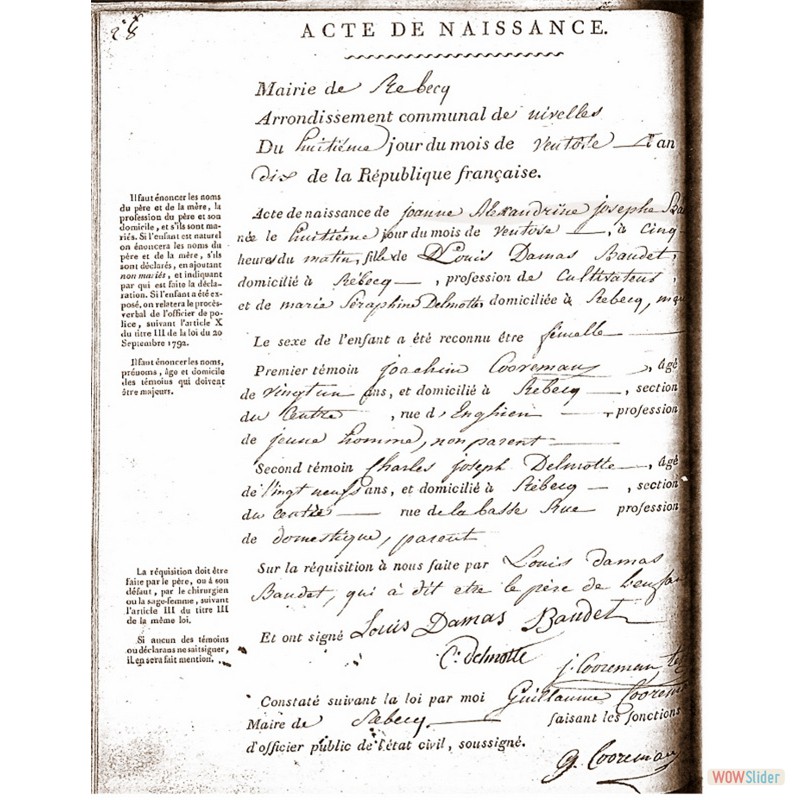 28
ACTE DE NAISSANCE.
Mairie de Rebecq
Arrondissement communal de nivelles
Du huitiéme jour du mois de ventose an
dix de la République française.
Il faut énoncer les noms
du père et de la mère, la
profession du père et son
domicile, et s'ils sont ma-
riés. Si l'enfant est naturel
on énoncera les noms du
père et de la mère, s'ils
sont déclarés, en ajoutant
non mariés, et indiquant
par qui est faite la décla-
ration. Si l'enfant a été ex-
posé, on relatera le procès-
verbal de l'officier de po-
lice, suivant l'article X
du titre III de la loi du 20
Septembre 1792.
Il faut énoncer les noms,
prénoms, âge et domicile
des témoins qui doivent
être majeurs.
Acte de naissance de joanne Alexandrine josephe
née le huitiéme jour du mois de ventose, à cinq
heures du matin, fille de Louis Damas Baudet,
domicilié à Rebecq, profession de Cultivateur,
et de marie Séraphine Delmotte domiciliée à Rebecq,
Le sexe de l'enfant a été reconnu être fémelle
Premier témoin joachim Cooremans, âgé
de vingt un ans, et domicilié à Rebecq, section
du Centre, rue d'Enghien profession
de jeune homme, non parent
Second témoin Charles joseph Delmotte, âgé
de vingt neuf ans, et domicilié à Rebecq, section
du centre rue de la basse Rue profession
de domestique, parent
La réquisition doit être
faite par le père, ou à son
défaut, par le chirurgien
ou la sage-femme, suivant
l'article III du titre III
de la même loi.
Si aucun des témoins
ou déclarans ne sait signer,
il en sera fait mention.
Sur la réquisition à nous faite par Louis damas
Baudet, qui à dit etre le père de
Et ont signé Louis Damas Baudet
C. delmotte
j. Cooreman
Constaté suivant la loi par moi Guillaume
Maire de Rebecq faisant les fonctions
d'officier public de l'état civil, soussigné.
g. Cooreman
WOWSlider